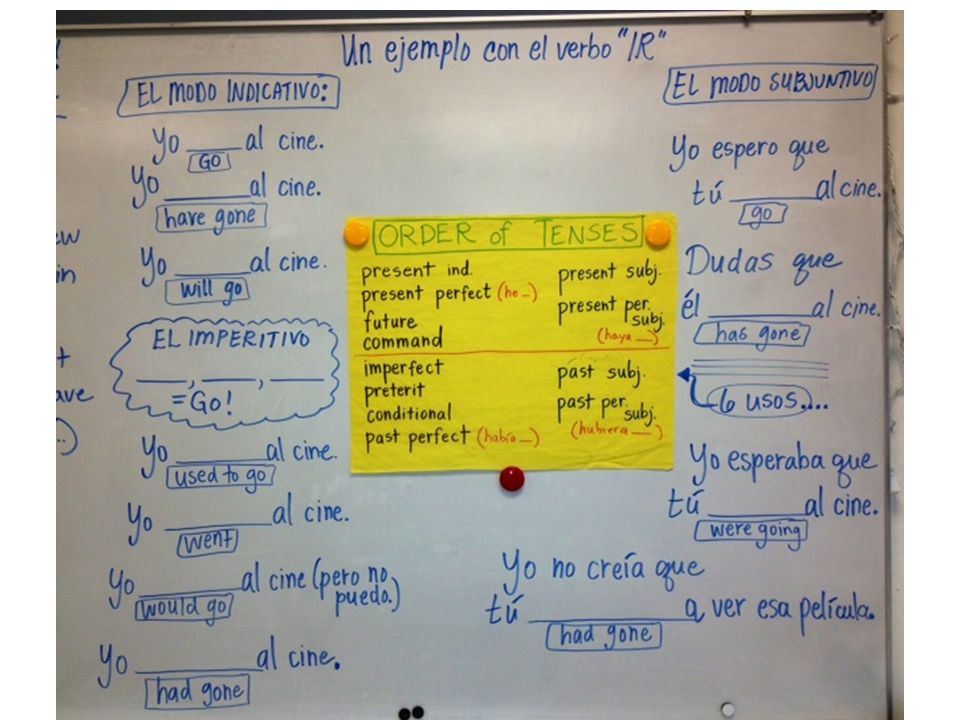 Un ejemplo con el verbo "IR"
EL MODO INDICATIVO:
Yo ____ al cine.
GO
Yo ______ al cine.
have gone
Yo _____ al cine.
will go
EL IMPERITIVO
____, ____, ____
= Go!
Yo ______ al cine.
used to go
Yo ______ al cine.
went
Yo ______ al cine (pero no
puedo.)
would go
Yo ________ al cine.
had gone
ORDER of TENSES
present ind.
present perfect (he _)
future
command
imperfect
preterit
conditional
past perfect (había _)
present subj.
present per.
subj.
(haya __)
past subj.
past per.
subj.
(hubiera __)
EL MODO SUBJUNTIVO
Yo espero que
tú ______ al cine.
go
Dudas que
él ______ al cine.
has gone
6 usos....
Yo esperaba que
tú ______ al cine.
were going
Yo no creía que
tú __________ a ver esa película.
had gone
ew
in
t
ave